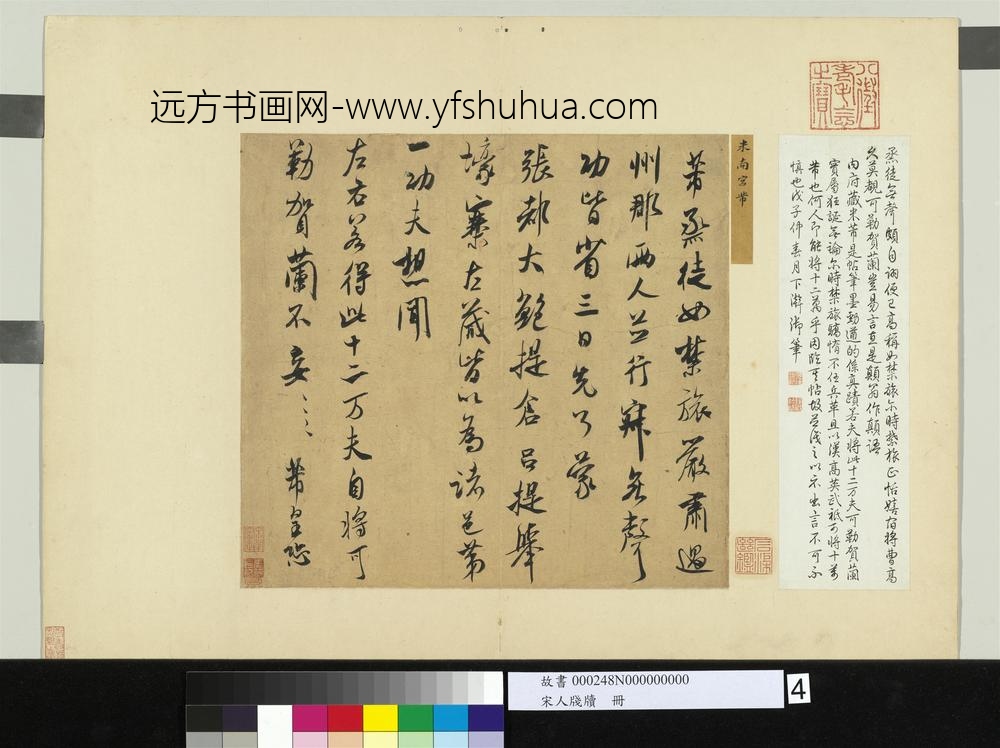 远方书画网-www.yfshuhua.com
八徵耄念之寶
烝徒無聲頗自詡便已高稱如禁旅尔時禁旅正恬嬉宿將曹高
久莫覩可勒賀蘭豈易言直是顛翁作顛語
內府藏米芾是帖筆墨勁遒的係真蹟若夫將此十二万夫可勒賀蘭
實屬狂誕無論尔時禁旅驕惰不任兵革且以漢高英武祗可將十萬
芾也何人即能將十二萬乎因臨是帖並識之以示出言不可不
慎也戊子仲春月下澣御筆
米南宮芾
芾烝徒如禁旅嚴肅過
州郡兩人並行寂無聲
功皆省三日先了蒙
張都大鮑提倉呂提舉
壕寨左藏皆以為諸邑第
一功夫想聞
左右若得此十二万夫自將可
勒賀蘭不妄ミミ 芾皇恐
故書 000248N000000000
宋人牋牘 冊
4